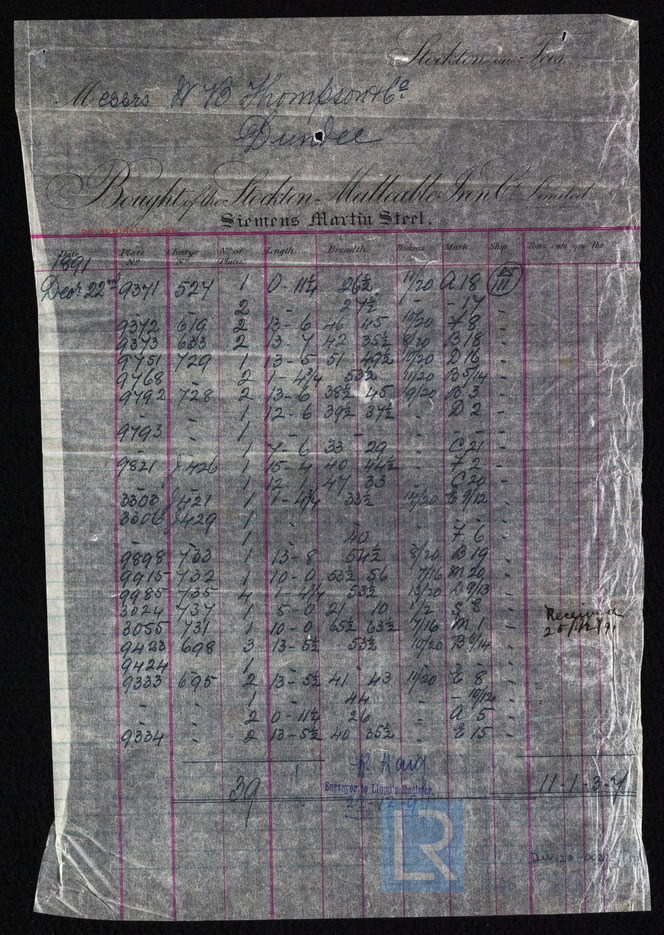 Stockton on Tees
Messrs W B Thompson & Co
Dundee
Bought of the Stockton Malleable Iron Co Limited.
Siemens Martin Steel.
Date Plate No Charge No No of Plates Length Breadth Thickness Mark Ship Tons cwts qrs lbs
1891
Decr 22nd 9371 527 1 0-11¼ 26½ 11/20 A 18
- - 2 - 27½ - - 17 -
9372 619 2 13-6 46 45 10/20 F 8 -
9373 633 2 13-7 42 35½ 8/20 B 18 -
9751 729 1 13-5 51 49½ 10/20 D 16 -
9768 - 2 1-4¾ 53½ 11/20 B 5/14 -
9792 728 2 13-6 38½ 45 9/20 B 3 -
- - 1 12-6 39½ 37½ - D 2 -
9793 - 1 - - - - -
- - 1 7-6 33 29 - C 21 -
9821 J426 1 15-4 40 44½ - F 2 -
- - 1 12-1 47 33 - C 20 -
3303 J421 1 1-4¾ 33½ 12/20 E 9/12 -
3306 J429 1 - - - - -
- - 1 - 40 - F 6 -
9898 733 1 13-8 54½ 8/20 B 19 -
9915 732 1 10-0 53½ 56 7/16 M 20 -
9985 735 4 1-4¾ 53½ 13/20 D 9/13 -
3024 737 1 5-0 21 10 1/2 S 8 -
3055 731 1 10-0 65½ 63½ 7/16 M 1 -
9423 698 3 13-5½ 53½ 10/20 B 9/14 -
9424 - 1 - - - - -
9333 695 2 13-5½ 41 43 11/20 E 8 -
- - 1 - 44 - - 10/12 -
- - 2 0-11½ 26 - A 5 -
9334 - 2 13-5½ 40 35½ - E 15 -
Received
25/12/91
39
Surveyor to Lloyd's Register.
11-1-3-7
LR